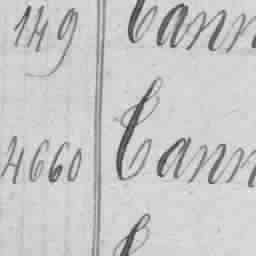 149 Cann
4660 Cann